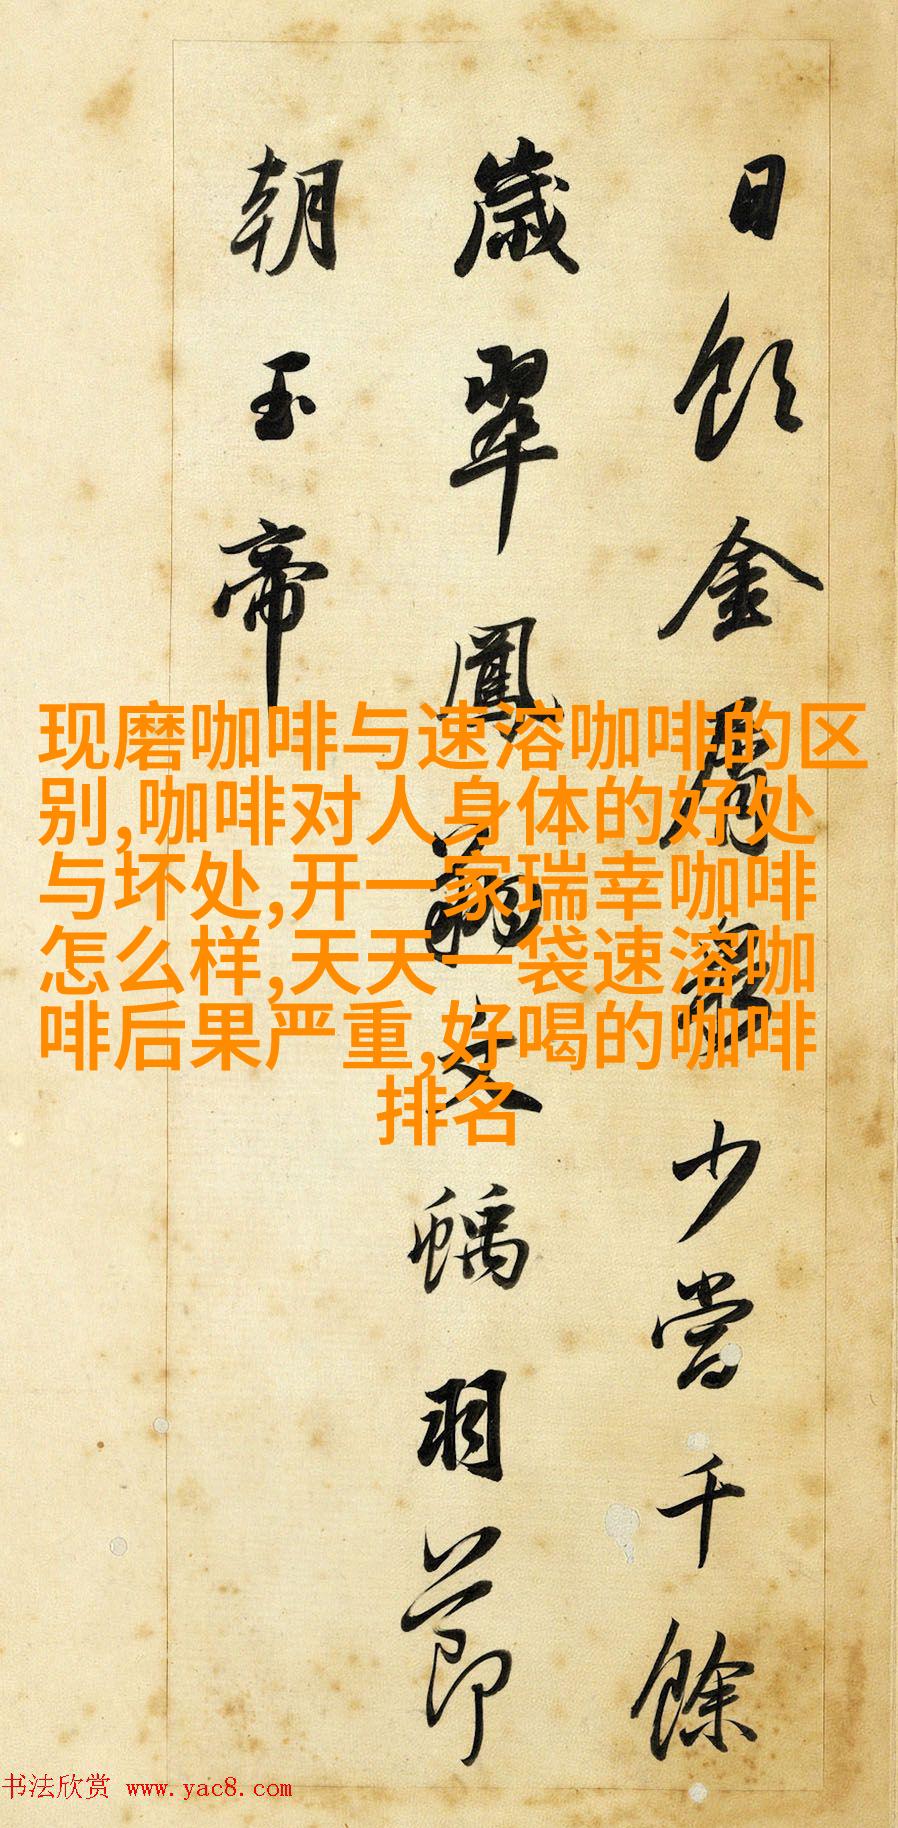 日飲金屑泉少當千餘
歲翠鳳文螭羽節
朝玉帝
现磨咖啡与速溶咖啡的区
别,咖啡对人身体的好处
与坏处,开一家瑞幸咖啡
怎么样,天天一袋速溶咖
啡后果严重,好喝的咖啡
排名
书法欣赏 www.yac8.com